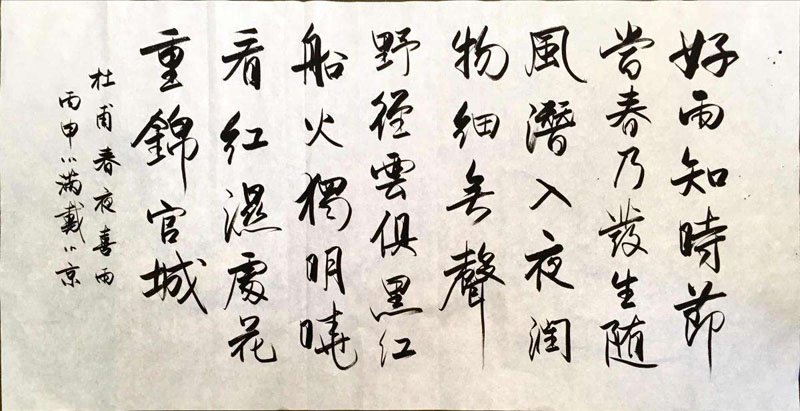 好雨知時節
當春乃發生随
風潛入夜润
物細無聲
野徑雲俱黑江
船火獨明曉
看红濕處花
重錦官城
杜甫春夜喜雨
丙申小滿戴小京